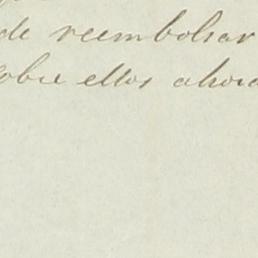 de reembolsar
sobre ellos ahora